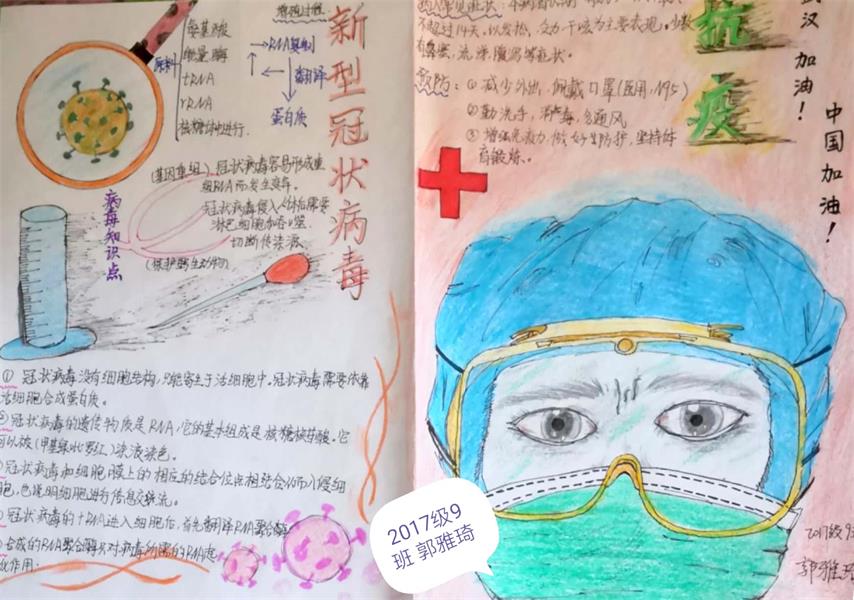 氨基酸
能量 酶
原料
tRNA
rRNA
核糖体中进行.
增殖过程.
→RNA复制
翻译
蛋白质
新型冠状病毒
(基因重组) 冠状病毒容易形成重
组RNA而发生变异.
冠状病毒侵入人体后需要
淋巴细胞和吞噬.
切断传染源
(保护野生动物)
病毒知识点
① 冠状病毒没有细胞结构,只能寄生于活细胞中.冠状病毒需要依靠
活细胞合成蛋白质.
②冠状病毒的遗传物质是RNA,它的基本组成是核糖核苷酸.它
可以被(甲基绿吡罗红)染液染色.
冠状病毒和细胞膜上的相应的结合位点相结合从而入侵细
胞,也说明细胞进行信息交流.
冠状病毒的+RNA进入细胞后,首先翻译RNA聚合酶
合成的RNA聚合酶只对病毒的RNA起
作用.
不超过14天,以发热、乏力、干咳为主要表现.少数
有鼻塞、流涕、腹泻等症状.
预防: ① 减少外出,佩戴口罩(医用,N95)
② 勤洗手,消毒,多通风
③ 增强免疫力,做好防护,坚持体
育锻炼.
抗疫
武汉 加油!
中国加油!
2017级9
班 郭雅琦
郭雅琦